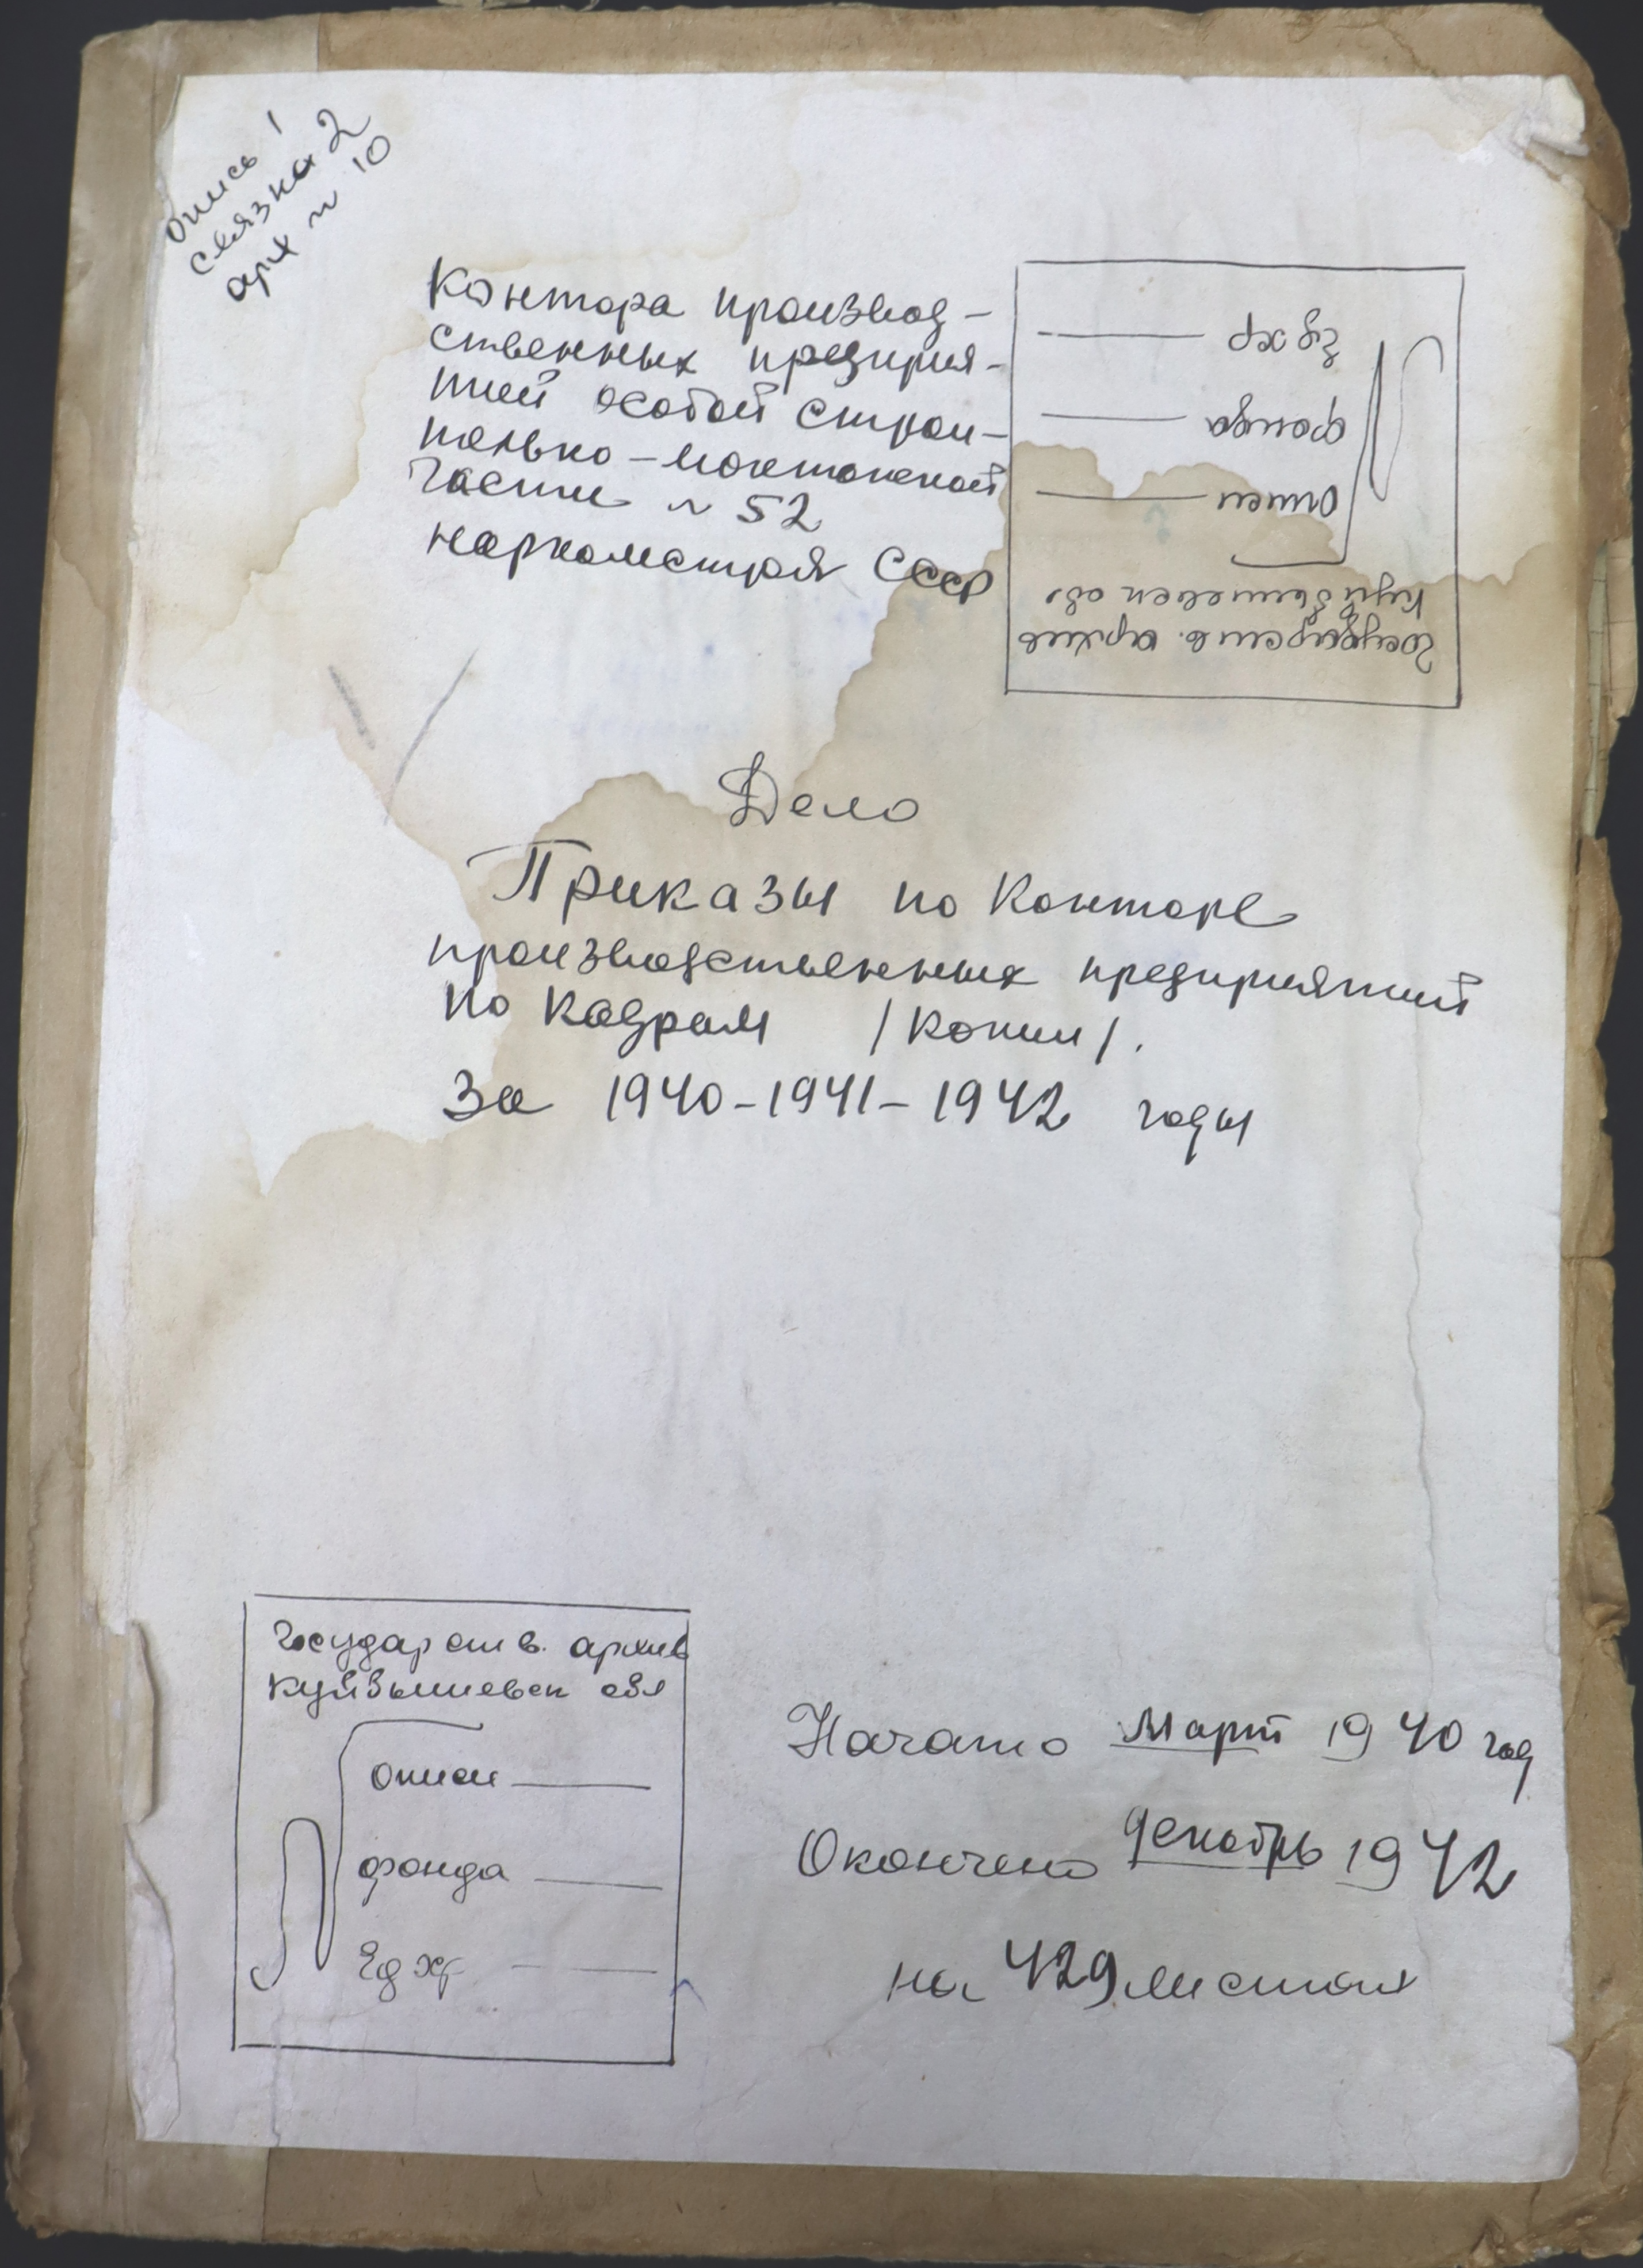 Опись 1
связка 2
арх № 10
Контора производ-
ственных предприя-
тий особой строи-
тельно-монтажной
части № 52
наркомстроя СССР
Государств. архив
Куйбышевск обл
описи
фонда
Ед хр
Дело
Приказы по Конторе
производственных предприятий
по кадрам /копии/.
За 1940-1941-1942 годы
Государств. архив
Куйбышевск обл
описи
фонда
Ед хр
Начато Март 1940 год
Окончено декабрь 1942
на 429 листах